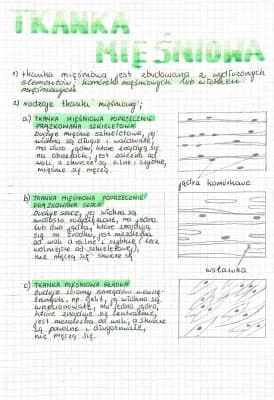 TKANKA
MIĘŚNIOWA
1) tkanka mięśniowa jest zbudowana z wydłużonych
elementów; komórek mięśniowych lub włókien
mięśniowych
2) rodzaje tkanki mięśniowej;
a) TKANKA MIĘŚNIOWA POPRZECZNIE
PRĄŻKOWANA SZKIELETOWA
buduje mięśnie szkieletowe, jej
włókna są długie i walcowate,
ma dużo jąder, które znajdują się
na obrzeżach, jest zależna od
woli, a skurcze są silne i szybkie,
mięśnie się męczą
jądra komórkowe
b) TKANKA MIĘŚNIOWA POPRZECZNIE
PRĄŻKOWANA SERCA
buduje serce, jej włókna są
widlasto rozgałęzione, ma jedno
lub dwa jądra, które znajdują
się na środku, jest niezależna
od woli, a silne i szybkie (lecz
wolniejsze od szkieletowej),
nie męczą się skurcze są
wstawka
c) TKANKA MIĘŚNIOWA GŁADKA
buduje ściany narządów wewnę-
trznych, np. jelit, jej włókna są
wrzecionowate, ma jedno jądro,
które znajduje się centralnie,
jest niezależna od woli, a skurcze
są powolne i długotrwałe,
nie męczą się.